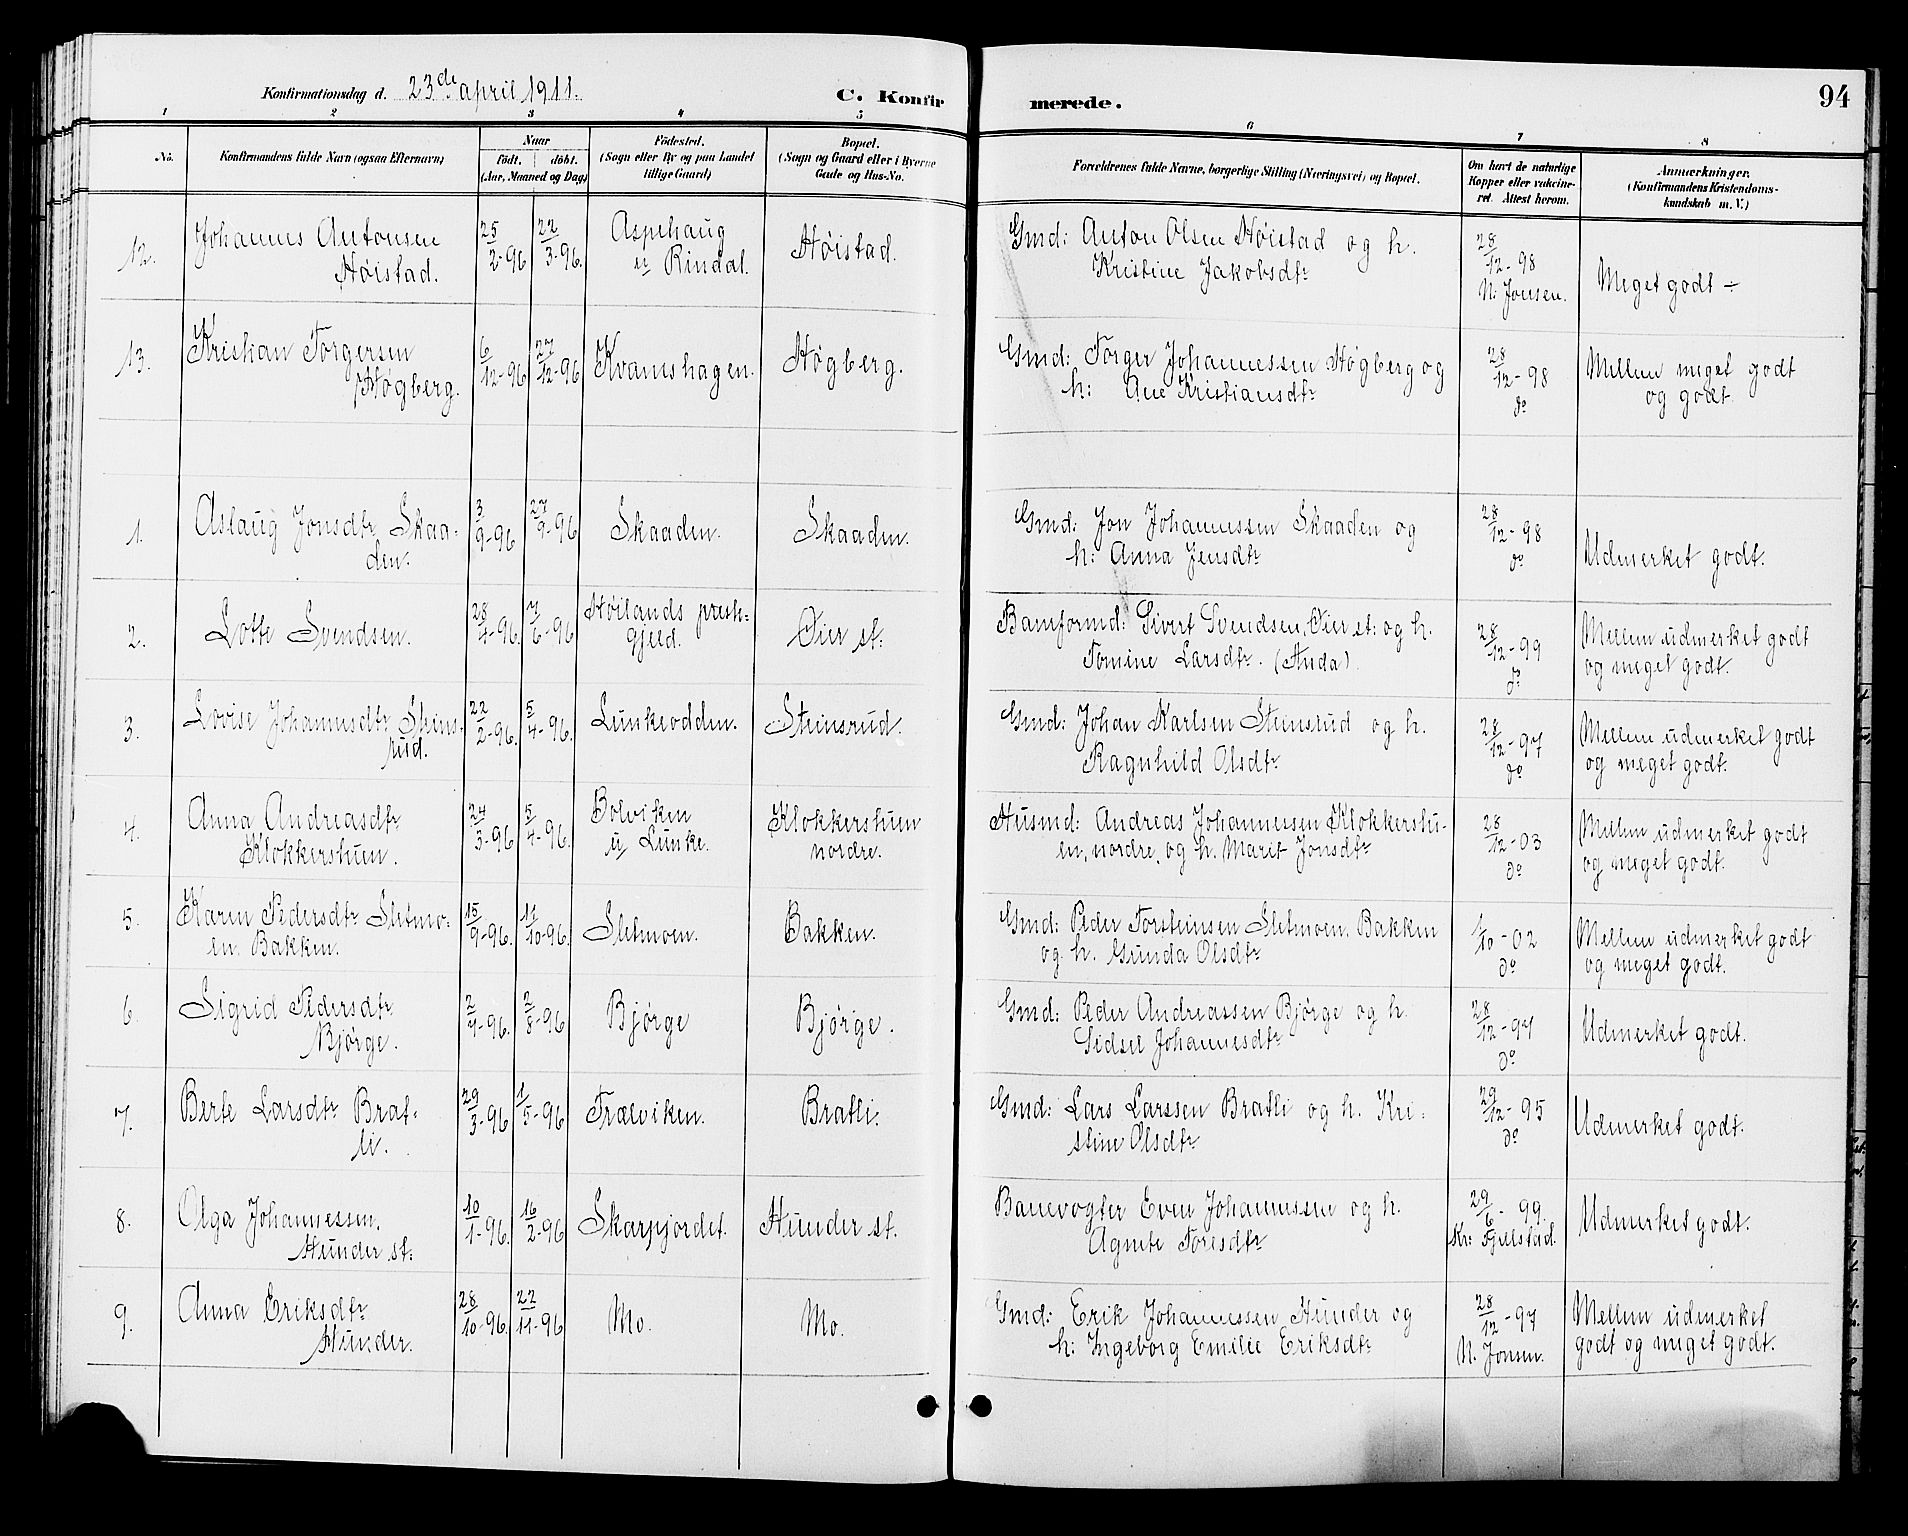 Konfirmationsdag d. 23de april 1911.
C. Konfirmerede.
94
1 2 3 4 5 6 7 8
No.
Konfirmandens fulde Navn (ogsaa Efternavn)
Naar
født. døbt.
(Aar, Maaned og Dag)
Fødested.
(Sogn eller By og paa Landet
tillige Gaard)
Bopæl.
(Sogn og Gaard eller i Byerne
Gade og Hus-No.
Forældrenes fulde Navne, borgerlige Stilling (Næringsvei) og Bopæl.
Om havt de naturlige
Kopper eller vakcine-
ret. Attest herom.
Anmærkninger.
(Konfirmandens Kristendoms-
kundskab m. V.)
12. Johannes Antonsen
Høistad.
25/2-96 22/3-96.
Aspehaug
u/ Rindal.
Høistad.
Gmd: Anton Olsen Høistad og h.
Kristine Jakobsdtr
28/12-98
N. Jonsen.
Meget godt ÷
13. Kristian Torgersen
Høgberg.
6/12-96 27/12-96
Kvamshagen.
Høgberg.
Gmd: Torger Johannessen Høgberg og
h: Ane Kristiansdtr
28/12-98
do
Mellem meget godt
og godt.
1. Aslaug Jonsdtr Skaa-
den.
3/9-96 27/9-96
Skaaden.
Skaaden.
Gmd: Jon Johannessen Skaaden og
h: Anna Jensdtr
28/12-98
do
Udmerket godt.
2. Lotte Svendsen.
28/4-96. 7/6-96
Høilands prest-
gjeld.
Øier st:
Baneformd: Sivert Svendsen, Øier st: og h.
Tomine Larsdtr. (Anda).
28/12-99
do
Mellem udmerket godt
og meget godt.
3. Lovise Johannesdtr Steins-
rud.
22/2-96. 5/4-96.
Lunkeodden.
Steinsrud.
Gmd: Johan Karlsen Steinsrud og h.
Ragnhild Olsdtr
28/12-97
do
Mellem udmerket godt
og meget godt.
4. Anna Andreasdtr
Klokkershuen.
24/3-96 5/4-96.
Bolviken
u/ Lunke.
Klokkershuen
nordre.
Husmd: Andreas Johannessen Klokkershu-
en, nordre, og h. Marit Jonsdtr
28/12-03
do
Mellem udmerket godt
og meget godt.
5. Karen Pedersdtr Sletmo-
en, Bakken.
15/9-96. 11/10-96.
Sletmoen.
Bakken.
Gmd: Peder Torsteinsen Sletmoen, Bakken
og h. Gunda Olsdtr
1/10-02
do
Mellem udmerket godt
og meget godt.
6. Sigrid Pedersdtr
Bjørge.
2/7-96. 2/8-96
Bjørge
Bjørge.
Gmd: Peder Andreassen Bjørge og h.
Sidsel Johannesdtr
28/12-97
do
Udmerket godt.
7. Berte Larsdtr Brat-
li.
29/3-96 1/5-96
Trælviken.
Bratli.
Gmd: Lars Larssen Bratli og h. Kri-
stine Olsdtr
29/12-95
do
Udmerket godt.
8. Olga Johannessen,
Hunder st:
10/1-96. 16/2-96
Skarpjordet.
Hunder st.
Banevogter Even Johannessen og h.
Agnete Toresdtr
29/6-99
Kr: Fjelstad.
Udmerket godt.
9. Anna Eriksdtr
Hunder.
28/10-96. 22/11-96
Mo.
Mo.
Gmd: Erik Johannessen Hunder og
h: Ingeborg Emilie Eriksdtr
28/12-97
N. Jonsen.
Mellem udmerket
godt og meget godt.